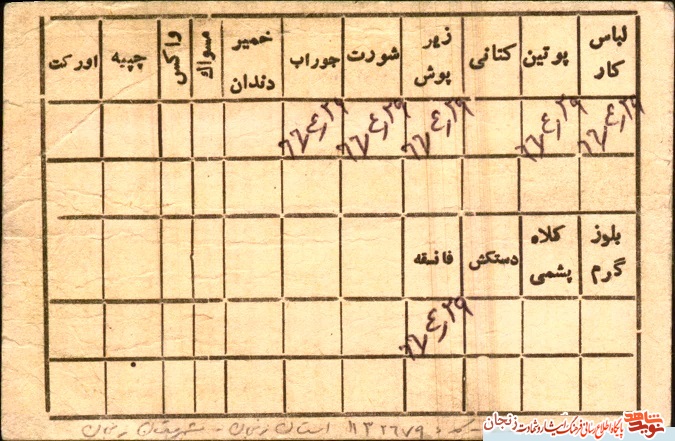 لباس کار پوتین کتانی زیر پوش شورت جوراب خمیر دندان مسواک واکس چپیه اورکت
۶۷٫۴٫۲۹ ۶۷٫۴٫۲۹ ۶۷٫۴٫۲۹ ۶۷٫۴٫۲۹ ۶۷٫۴٫۲۹
بلوز گرم کلاه پشمی دستکش فانسقه
۶۷٫۴٫۲۹
کد: ۱۱۳۲۶۷۹ استان زنجان - شهرستان زنجان
نوید شاهد پایگاه اطلاع رسانی فرهنگ ایثار و شهادت زنجان